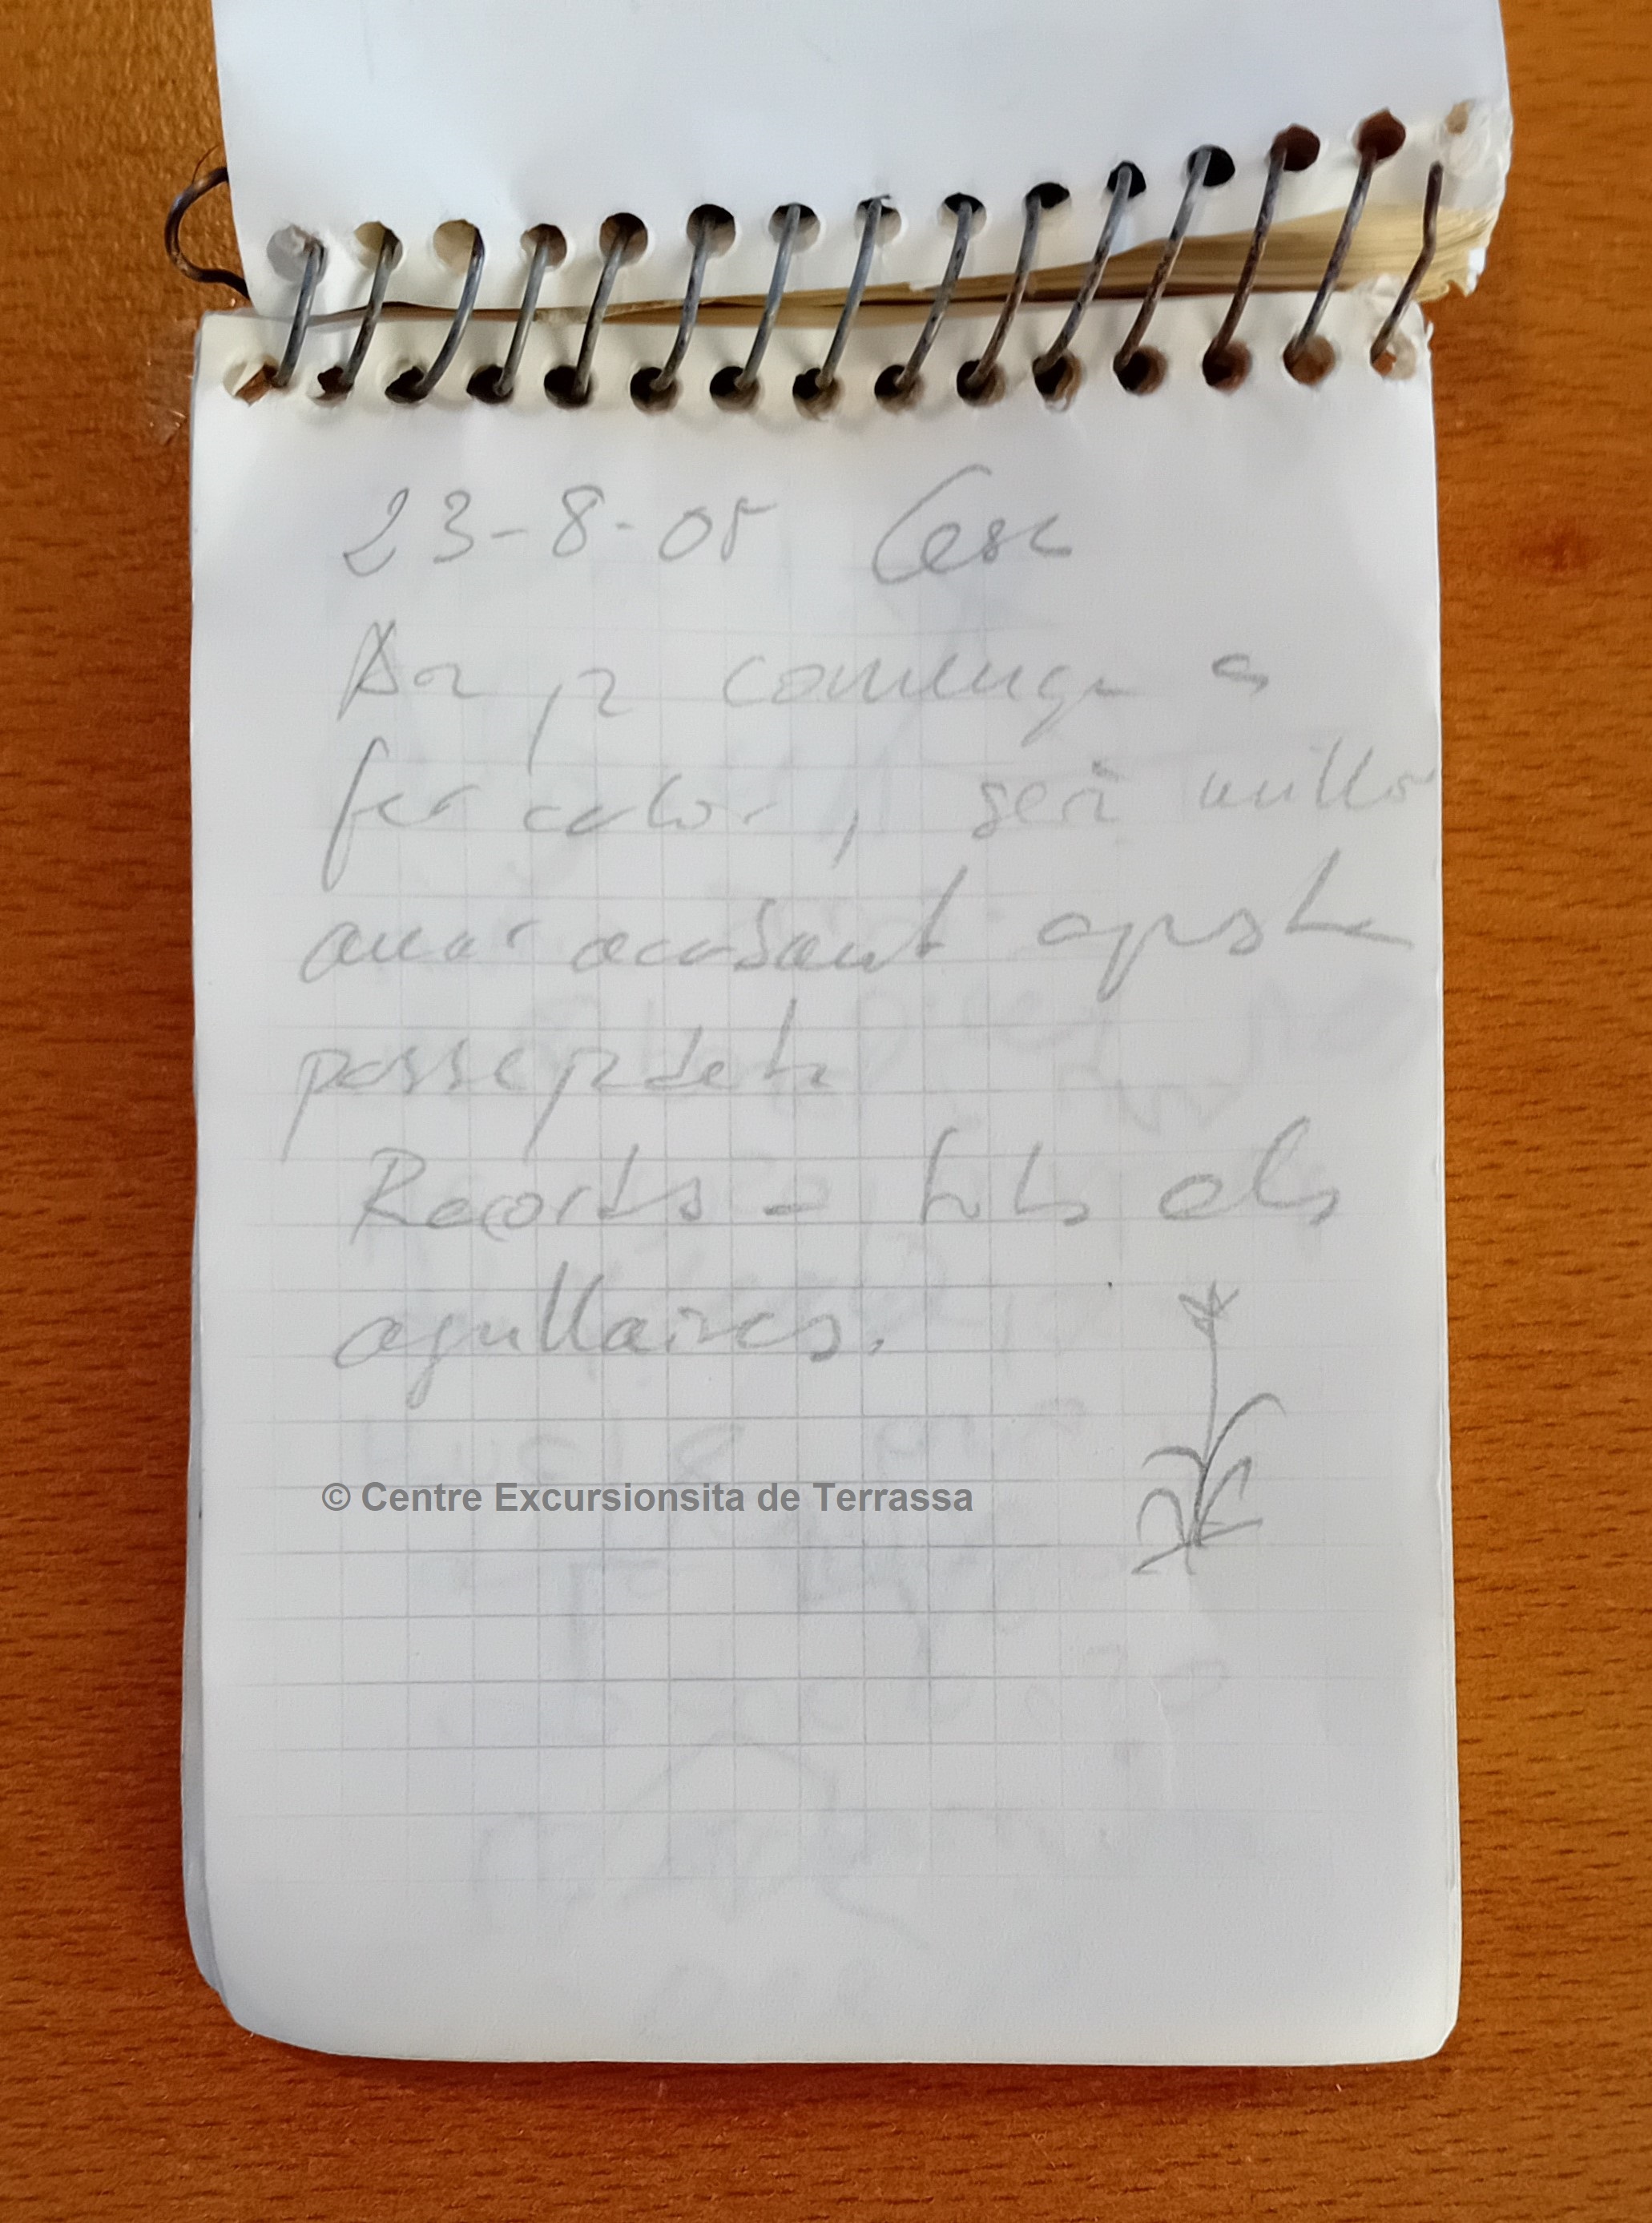 23-8-05 Cesc
Ara ja comença a
fer calor, serà millor
anar acabant aquesta
passejadeta
Records a tots els
agullaires.
© Centre Excursionsita de Terrassa